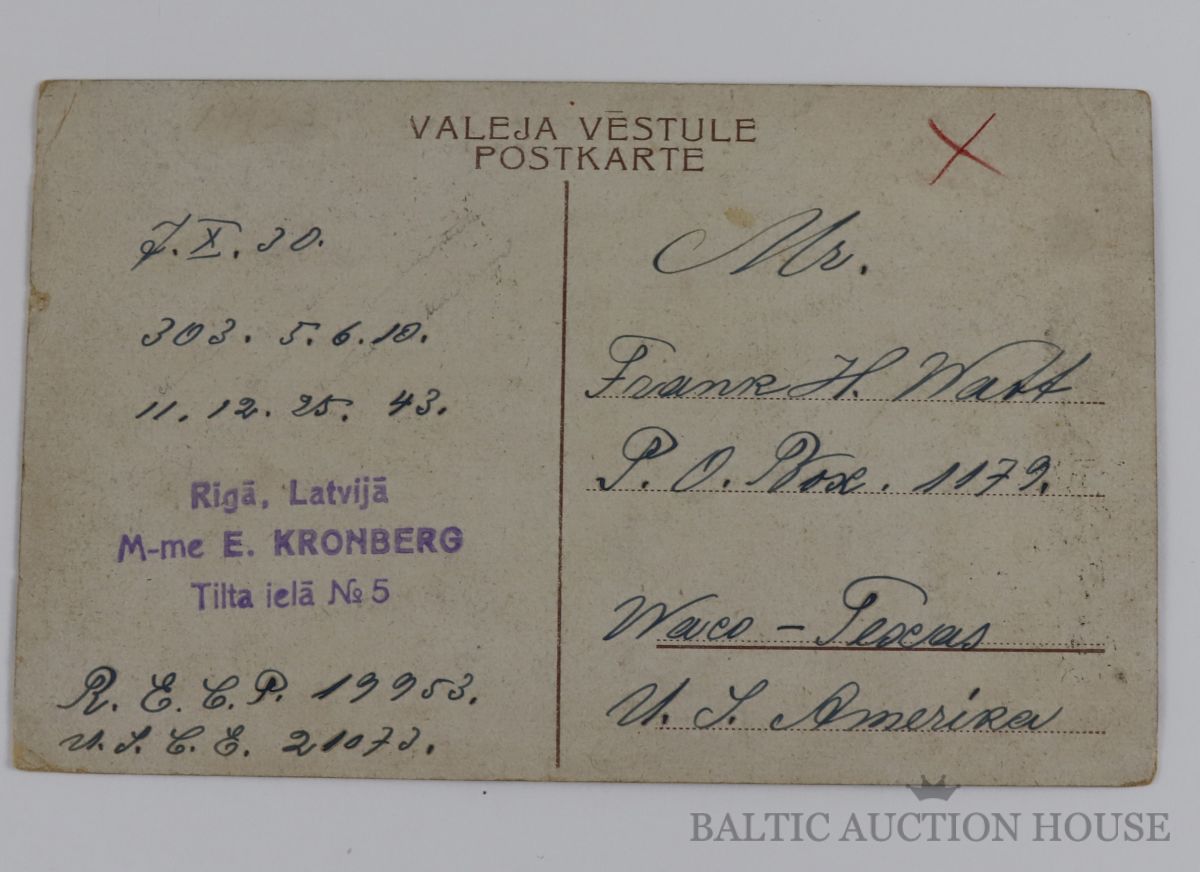 VALEJA VĒSTULE
POSTKARTE
7.X.30.
303. 5.6.10.
11. 12. 25. 43.
Rīgā, Latvijā
M-me E. KRONBERG
Tilta ielā № 5
R. E. C. P. 19953.
U. S. C. E. 21073.
Mr.
Frank H. Watt
P. O. Box. 1179.
Waco – Texas
U. S. Amerika
BALTIC AUCTION HOUSE